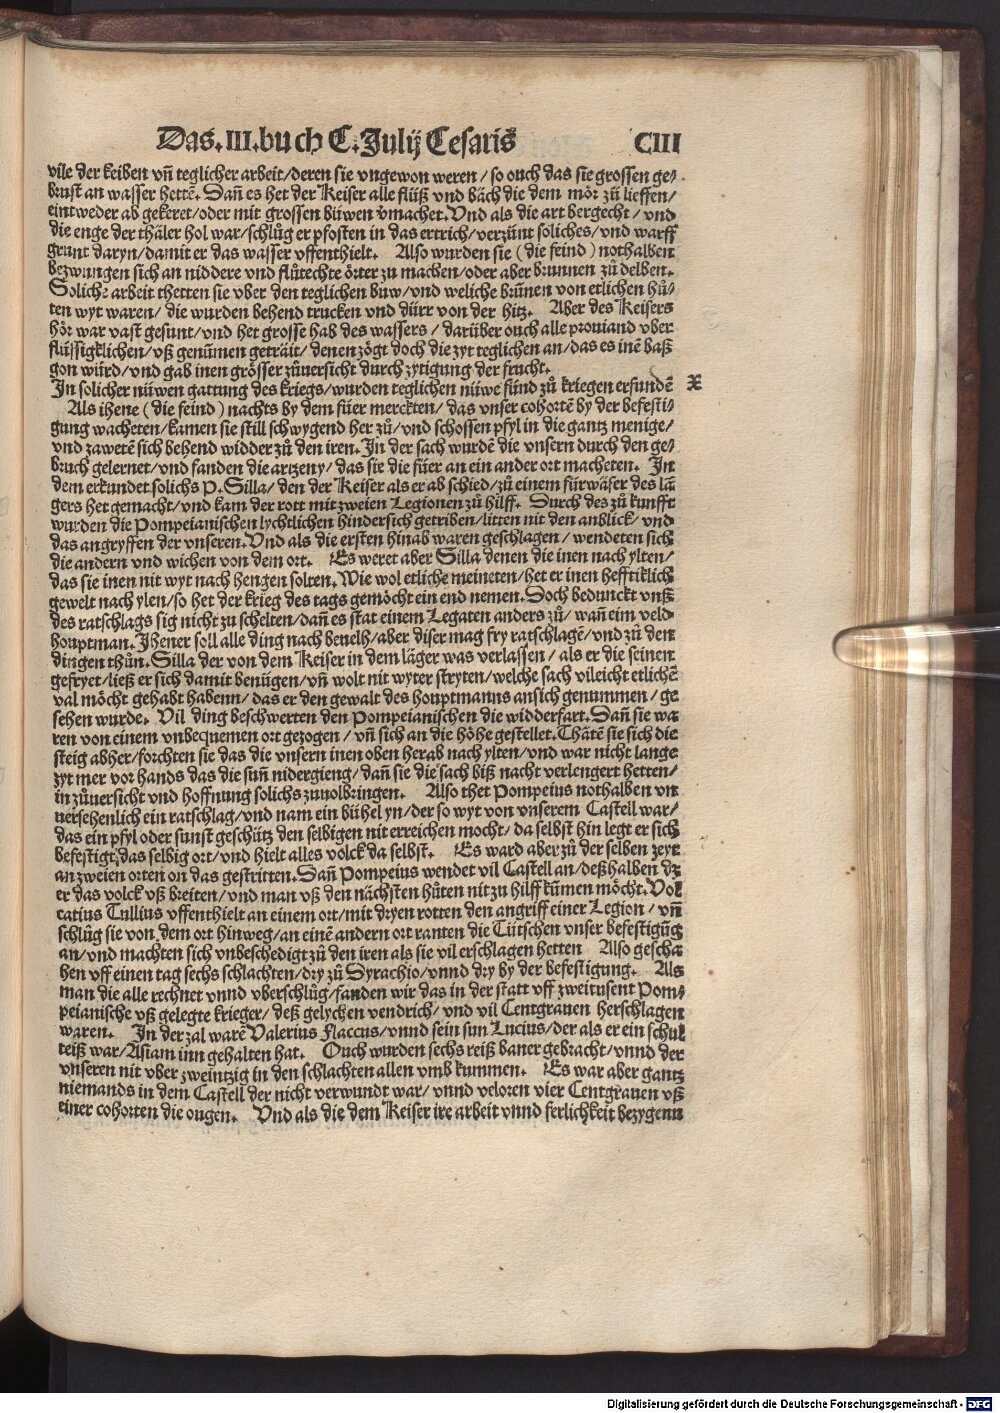 Das. III. buch C. Julij Cesaris CIII
vile der keiben vñ teglicher arbeit/deren sie vngewon weren / so ouch das sie grossen ge⸗
brust an wasser hettẽ. Dañ es het der Keiser alle flüß vnd bäch die dem mör zů lieffen/
eintweder ab gekeret/oder mit grossen büwen v̈machet. Vnd als die art bergecht / vnd
die enge der thäler hol war/schlůg er pfosten in das ertrich/verzünt soliches/vnd warff
grunt daryn/damit er das wasser vffenthielt. Also wurden sie (die feind) nothalben
bezwungen sich an niddere vnd flůtechte örter zů machen/oder aber brunnen zů delben.
Soliche arbeit thetten sie vber den teglichen buw/vnd weliche brüñen von etlichen hü⸗
ten wyt waren/ die wurden behend trucken vnd dürr von der hitz. Aber des Keisers
hör war vast gesunt/vnd het grosse hab des wassers / darüber ouch alle prouiand vber
flüssigklichen/vß genům̃en geträit/denen zögt doch die zyt teglichen an/das es inẽ baß
gon würd/vnd gab inen grösser zůuersicht durch zytigung der frucht.
In solicher nüwen gattung des kriegs/wurden teglichen nüwe fünd zů kriegen erfundẽ X
Als ihene (die feind) nachts by dem füer merckten/ das vnser cohortẽ by der befesti⸗
gung wacheten/kamen sie still schwygend her zů/vnd schossen pfyl in die gantz menige/
vnd zawetẽ sich behend widder zů den iren. In der sach wurdẽ die vnsern durch den ge⸗
bruch gelernet/vnd fanden die artzeny/das sie die füer an ein ander ort macheten. In
dem erkundet solichs P. Silla/den der Keiser als er ab schied/zů einem fürwäser des lä⸗
gers het gemacht/vnd kam der rott mit zweien Legionen zů hilff. Durch des zů kunfft
wurden die Pompeianischen lychtlichen hindersich getriben/litten nit den anblick/vnd
das angryffen der vnseren. Vnd als die ersten hinab waren geschlagen / wendeten sich
die andern vnd wichen von dem ort. Es weret aber Silla denen die inen nach ylten/
das sie inen nit wyt nach hengen solten. Wie wol etliche meineten/het er inen hefftiklich
gewelt nach ylen/so het der krieg des tags gemöcht ein end nemen. Doch bedunckt vnß
des ratschlags sig nicht zů schelten/dañ es stat einem Legaten anders zů/ wañ eim veld⸗
houptman. Jhener soll alle ding nach beuelh/aber diser mag fry ratschlagẽ/vnd zů den
dingen thůn. Silla der von dem Keiser in dem läger was verlassen / als er die seinen
gefryet/ließ er sich damit benügen/vñ wolt nit wyter stryten/welche sach vileicht etlichẽ
val möcht gehabt habenn/das er den gewalt des houptmanns ansich genummen/ ge
sehen wurde. Vil ding beschwerten den Pompeianischen die widderfart. Dañ sie wa
ren von einem vnbequemen ort gezogen / vñ sich an die höhe gestellet. Thätẽ sie sich die
steig abher/forchten sie das die vnsern inen oben herab nach ylten/vnd war nicht lange
zyt mer vor hands das die suñ nidergieng/dañ sie die sach biß nacht verlengert hetten/
in zůuersicht vnd hoffnung solichs zuuolbringen. Also thet Pompeius nothalben vn
uersehenlich ein ratschlag/vnd nam ein bühel yn/der so wyt von vnserem Castell war/
das ein pfyl oder sunst geschütz den selbigen nit erreichen mocht/da selbst hin legt er sich
befestigt das selbig ort/vnd hielt alles volck da selbst. Es ward aber zů der selben zeyt
an zweien orten on das gestritten. Dañ Pompeius wendet vil Castell an/deßhalben dz
er das volck vß breiten/vnd man vß den nächsten hůten nit zu hilff kům̃en möcht. Vol
catius Tullius vffenthielt an einem ort/mit dryen rotten den angriff einer Legion / vñ
schlůg sie von dem ort hinweg/an einẽ andern ort ranten die Tütschen vnser befestigũg
an/vnd machten sich vnbeschedigt zů den iren als sie vil erschlagen hetten Also gescha
hen vff einen tag sechs schlachten/dry zů Dyrachio/vnnd dry by der befestigung. Als
man die alle rechnet vnnd vberschlůg/fanden wir das in der statt vff zweitusent Pom⸗
peianische vß gelegte krieger/deß gelychen vendrich/vnd vil Centgrauen herschlagen
waren. In der zal warẽ Valerius Flaccus/vnnd sein sun Lucius/der als er ein schul
teiß war/Asiam inn gehalten hat. Ouch wurden sechs reiß baner gebracht/vnnd der
vnseren nit vber zweintzig in den schlachten allen vmb kummen. Es war aber gantz
niemands in dem Castell der nicht verwundt war/vnnd veloren vier Centgrauen vß
einer cohorten die ougen. Vnd als die dem Keiser ire arbeit vnnd ferlichkeit bezygenn
Digitalisierung gefördert durch die Deutsche Forschungsgemeinschaft - DFG